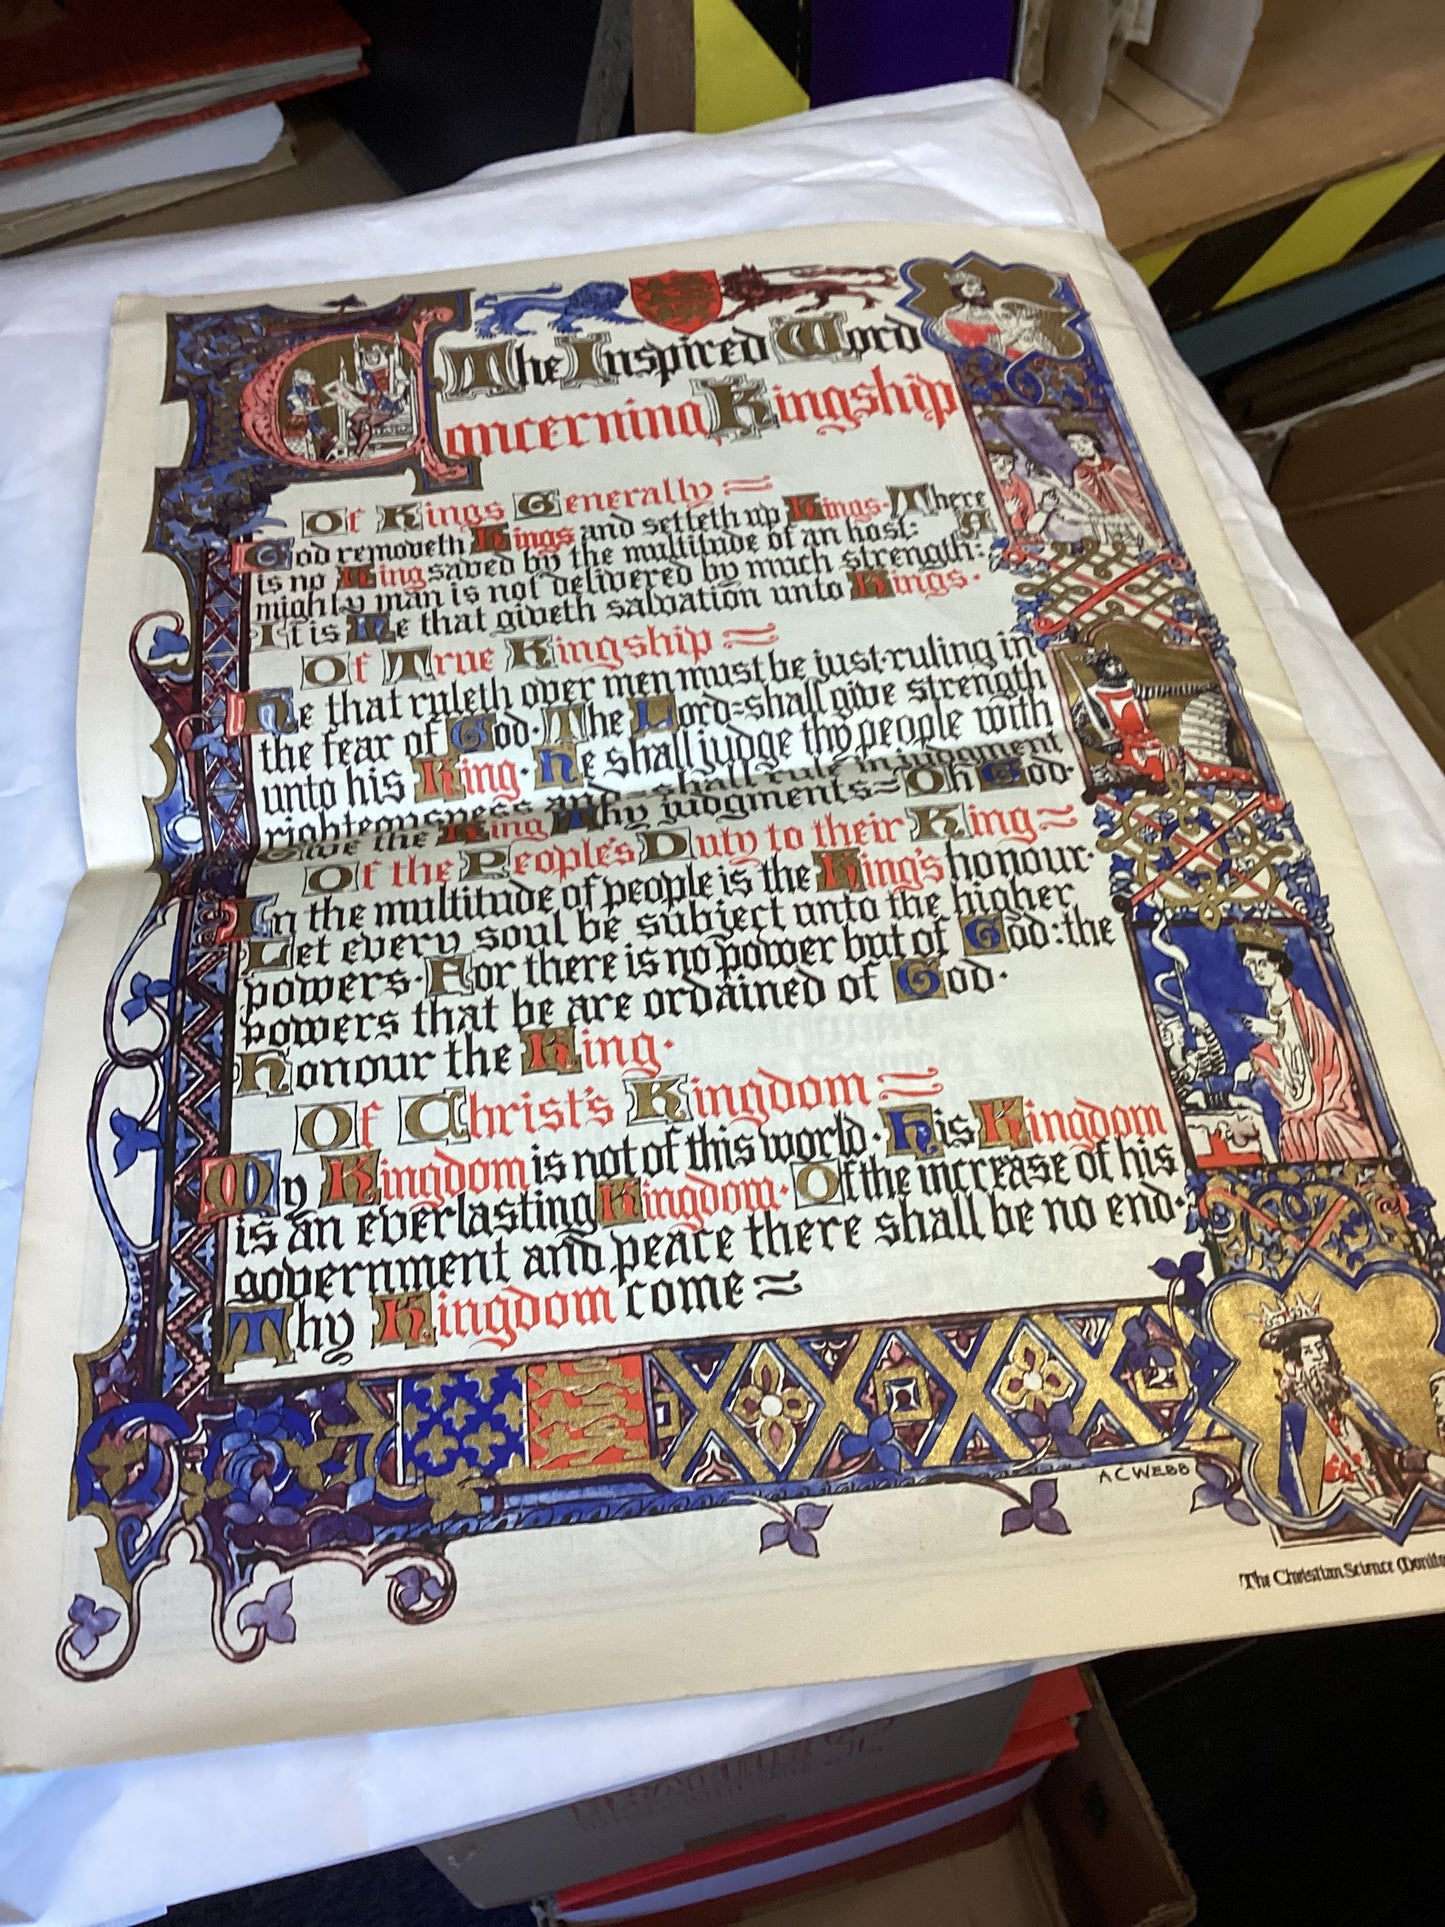 The Inspired Word
Concerning Kingship
Of Kings Generally
God removeth Kings and setteth up Kings. There
is no King saved by the multitude of an host: A
mighty man is not delivered by much strength:
It is He that giveth salvation unto Kings.
Of True Kingship
He that ruleth over men must be just·ruling in
the fear of God. The Lord shall give strength
unto his King. he shall judge thy people with
righteousness and shall rule in judgment
Give the King Thy judgments= Oh God.
Of the People's Duty to their King
In the multitude of people is the King's honour.
Let every soul be subject unto the higher
powers. For there is no power but of God: the
powers that be are ordained of God.
honour the King.
Of Christ's Kingdom
My Kingdom is not of this world. his Kingdom
is an everlasting Kingdom. Of the increase of his
government and peace there shall be no end.
Thy Kingdom come
A C WEBB
The Christian Science